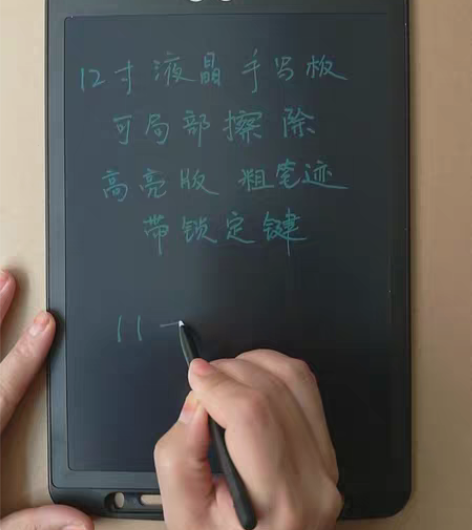 12寸液晶手写板
可局部擦除
高亮版 粗笔迹
带锁定键
11一